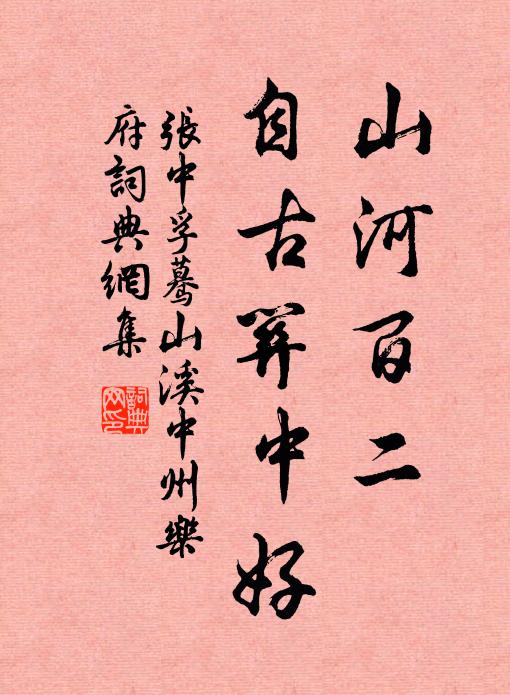 山河百二
自古關中好
張中孚驀山溪中州樂
府詞典網集
詞典
网印